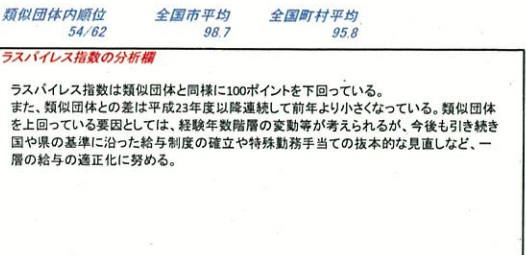 類似団体内順位 全国市平均 全国町村平均
54/62 98.7 95.8
ラスパイレス指数の分析欄
ラスパイレス指数は類似団体と同様に100ポイントを下回っている。
また、類似団体との差は平成23年度以降連続して前年より小さくなっている。類似団体
を上回っている要因としては、経験年数階層の変動等が考えられるが、今後も引き続き
国や県の基準に沿った給与制度の確立や特殊勤務手当ての抜本的な見直しなど、一
層の給与の適正化に努める。